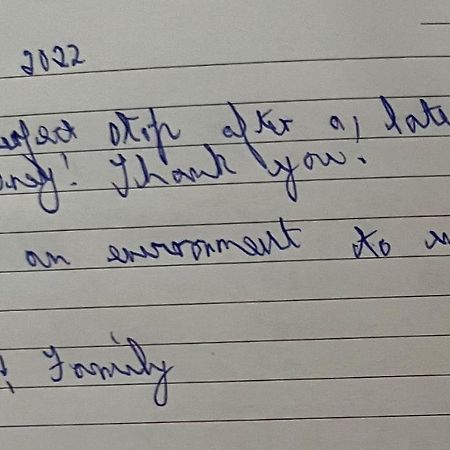 2022
erfect stop after a, late
ney! Thank you.
an environment to
& Family